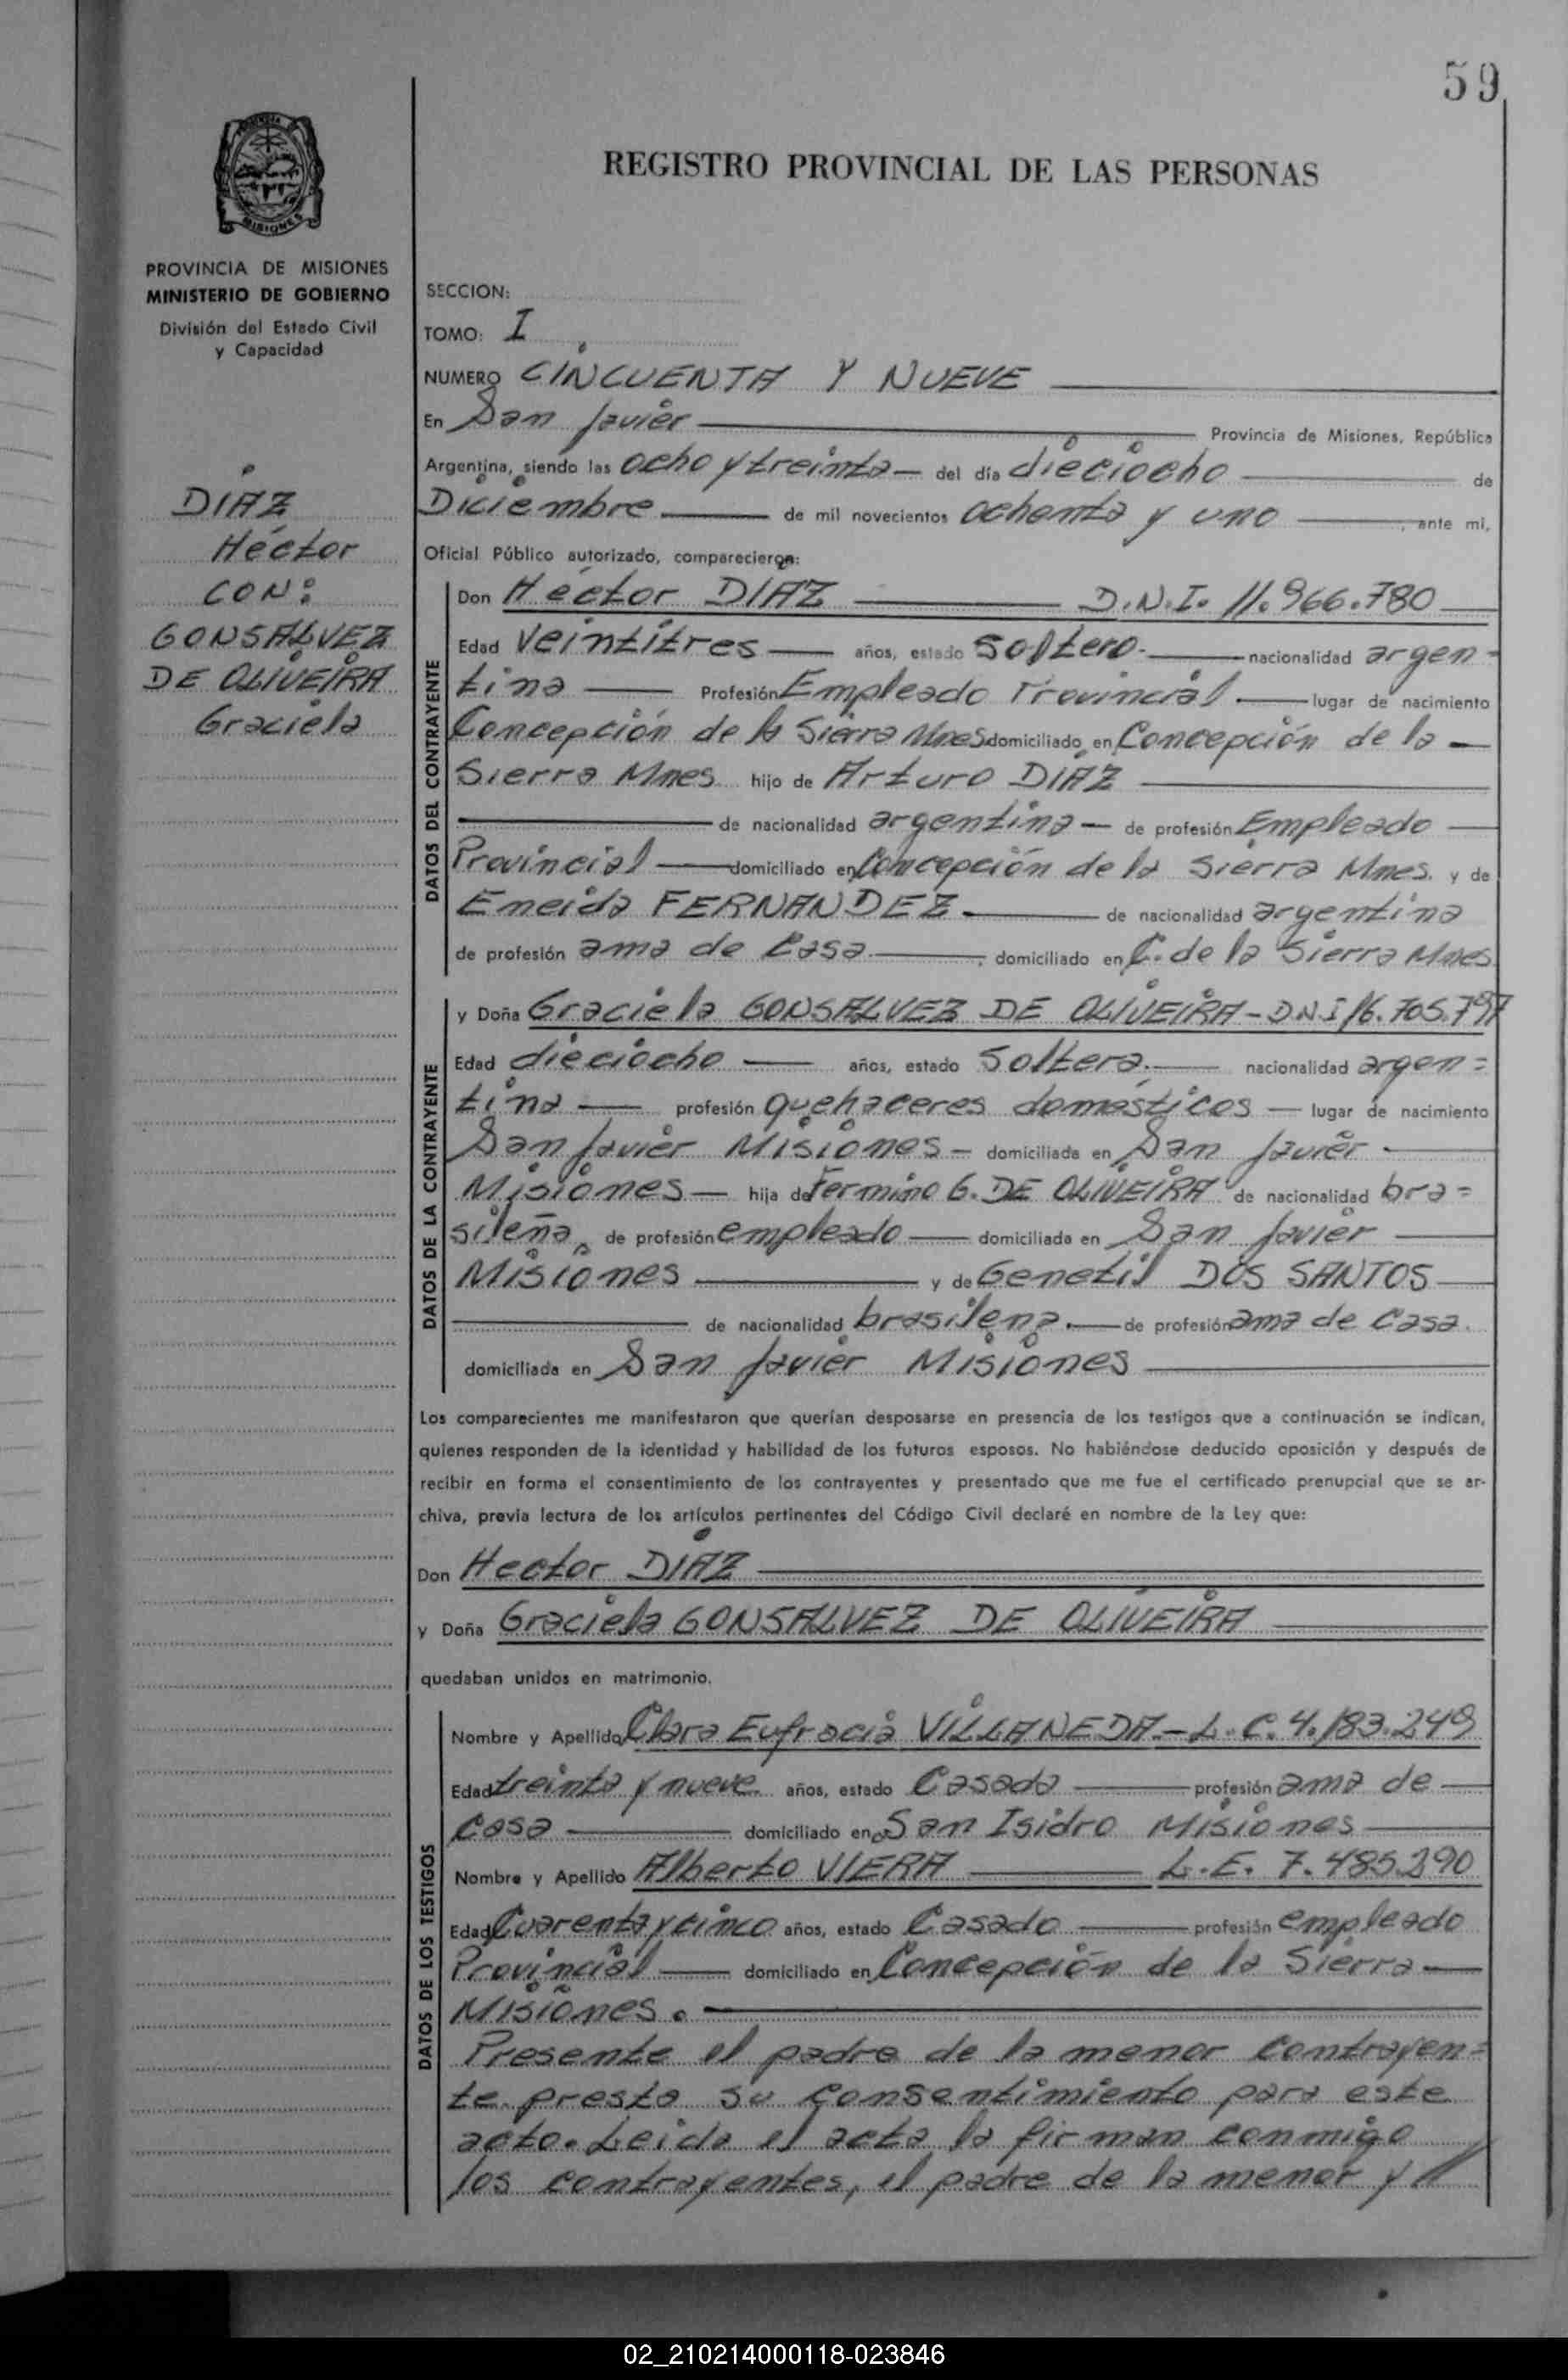 59
REGISTRO PROVINCIAL DE LAS PERSONAS
MISIONES
PROVINCIA DE MISIONES
MINISTERIO DE GOBIERNO
División del Estado Civil
y Capacidad
DIAZ
Héctor
CON:
GONSALVEZ
DE OLIVEIRA
Graciela
SECCION:
TOMO: I
NUMERO CINCUENTA Y NUEVE
En San Javier Provincia de Misiones, República
Argentina, siendo las ocho y treinta del día dieciocho de
Diciembre de mil novecientos ochenta y uno, ante mi,
Oficial Público autorizado, comparecieron:
DATOS DEL CONTRAYENTE
Don Héctor DIAZ D.N.I. 11.966.780
Edad veintitres años, estado Soltero. nacionalidad argen=
tina Profesión Empleado Provincial lugar de nacimiento
Concepción de la Sierra Mnes domiciliado en Concepción de la
Sierra Mnes hijo de Arturo DIAZ
de nacionalidad argentina de profesión Empleado
Provincial domiciliado en Concepción de la Sierra Mnes. y de
Eneida FERNANDEZ. de nacionalidad argentina
de profesión ama de Casa. domiciliado en C. de la Sierra Mnes
DATOS DE LA CONTRAYENTE
y Doña Graciela GONSALVEZ DE OLIVEIRA - D.N.I 16.705.797
Edad dieciocho años, estado Soltera. nacionalidad argen=
tina profesión quehaceres domésticos lugar de nacimiento
San Javier Misiones domiciliada en San Javier
Misiones hija de Fermino G. DE OLIVEIRA de nacionalidad bra=
sileña, de profesión empleado domiciliada en San Javier
Misiones y de Genetil DOS SANTOS
de nacionalidad brasilena. de profesión ama de Casa.
domiciliada en San Javier Misiones
Los comparecientes me manifestaron que querían desposarse en presencia de los testigos que a continuación se indican,
quienes responden de la identidad y habilidad de los futuros esposos. No habiéndose deducido oposición y después de
recibir en forma el consentimiento de los contrayentes y presentado que me fue el certificado prenupcial que se ar-
chiva, previa lectura de los artículos pertinentes del Código Civil declaré en nombre de la Ley que:
Don Hector DIAZ
y Doña Graciela GONSALVEZ DE OLIVEIRA
quedaban unidos en matrimonio.
DATOS DE LOS TESTIGOS
Nombre y Apellido Clara Eufracia VILLANEDA.- L.C. 4.183.249
Edad treinta y nueve años, estado Casada profesión ama de
casa domiciliado en San Isidro Misiones
Nombre y Apellido Alberto VIERA L.E. 7.485.290
Edad Cuarenta y cinco años, estado Casado profesión empleado
Provincial domiciliado en Concepción de la Sierra
Misiones.
Presente el padre de la menor contrayen=
te presta su consentimiento para este
acto. Leida el acta la firman conmigo
los contrayentes, el padre de la menor y //
02_210214000118-023846